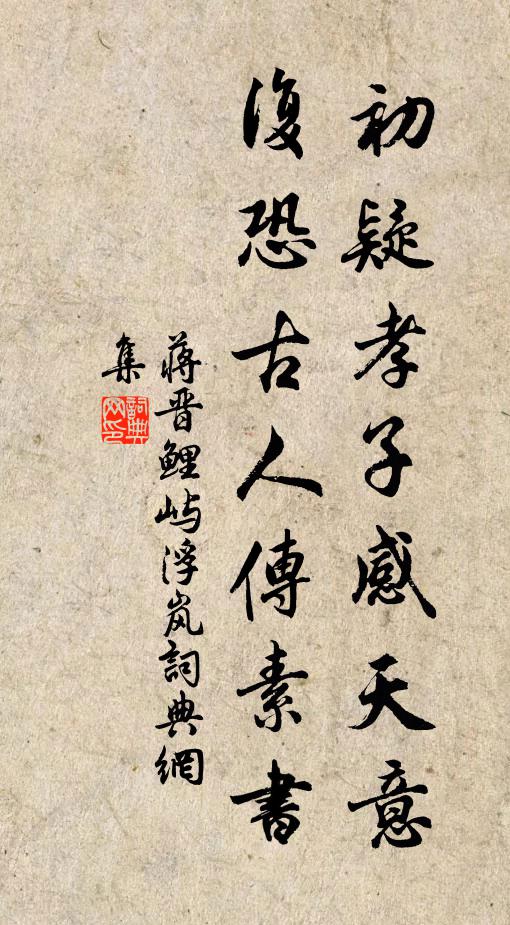 初疑孝子感天意
復恐古人傳素書
蔣晋鲤屿浮岚詞典網
集
詞典
网印